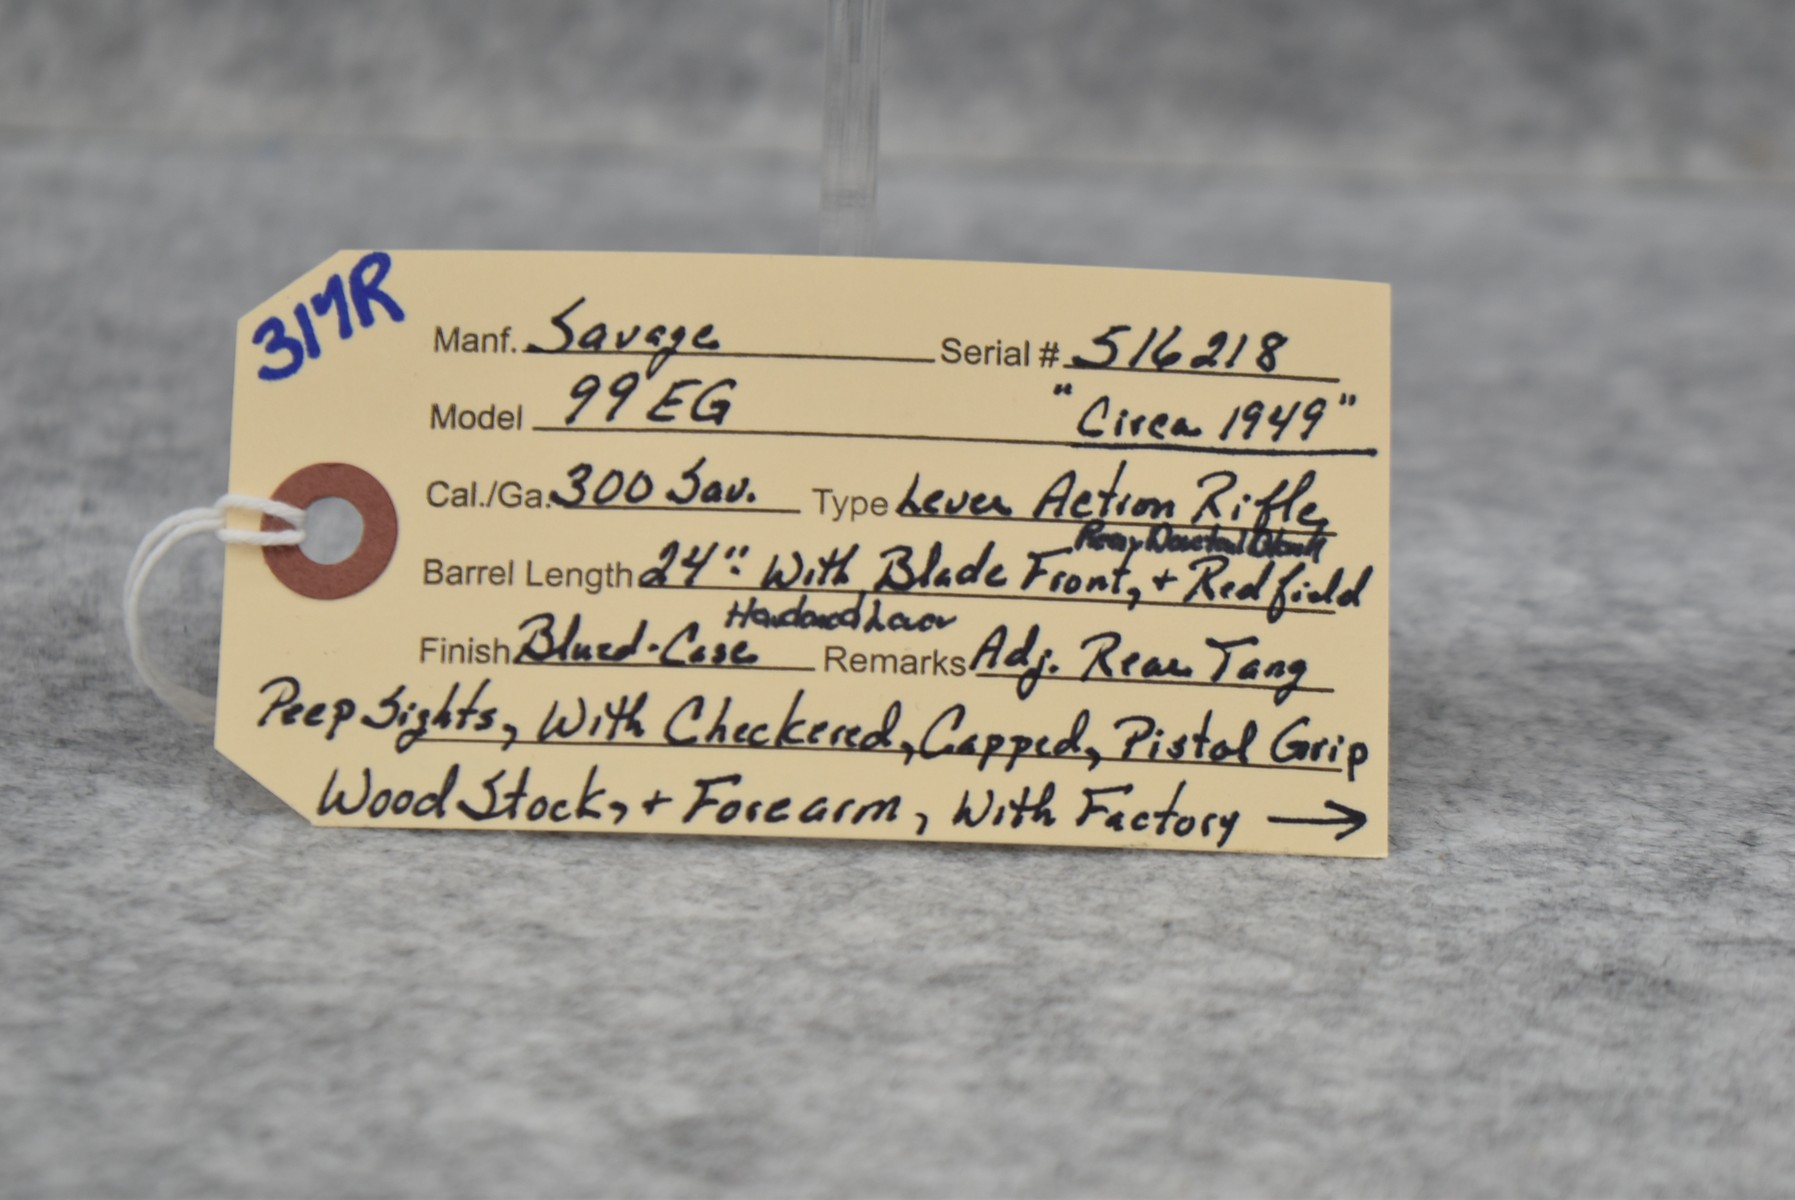 317R
Manf. Savage Serial # 516218
Model 99 EG "Circa 1949"
Cal./Ga. 300 Sav. Type Lever Action Rifle,
Rear Dovetail Blank
Barrel Length 24": With Blade Front, + Redfield
Hardened Lever
Finish Blued-Case Remarks Adj. Rear Tang
Peep Sights, With Checkered, Capped, Pistol Grip
Wood Stock, + Forearm, With Factory →